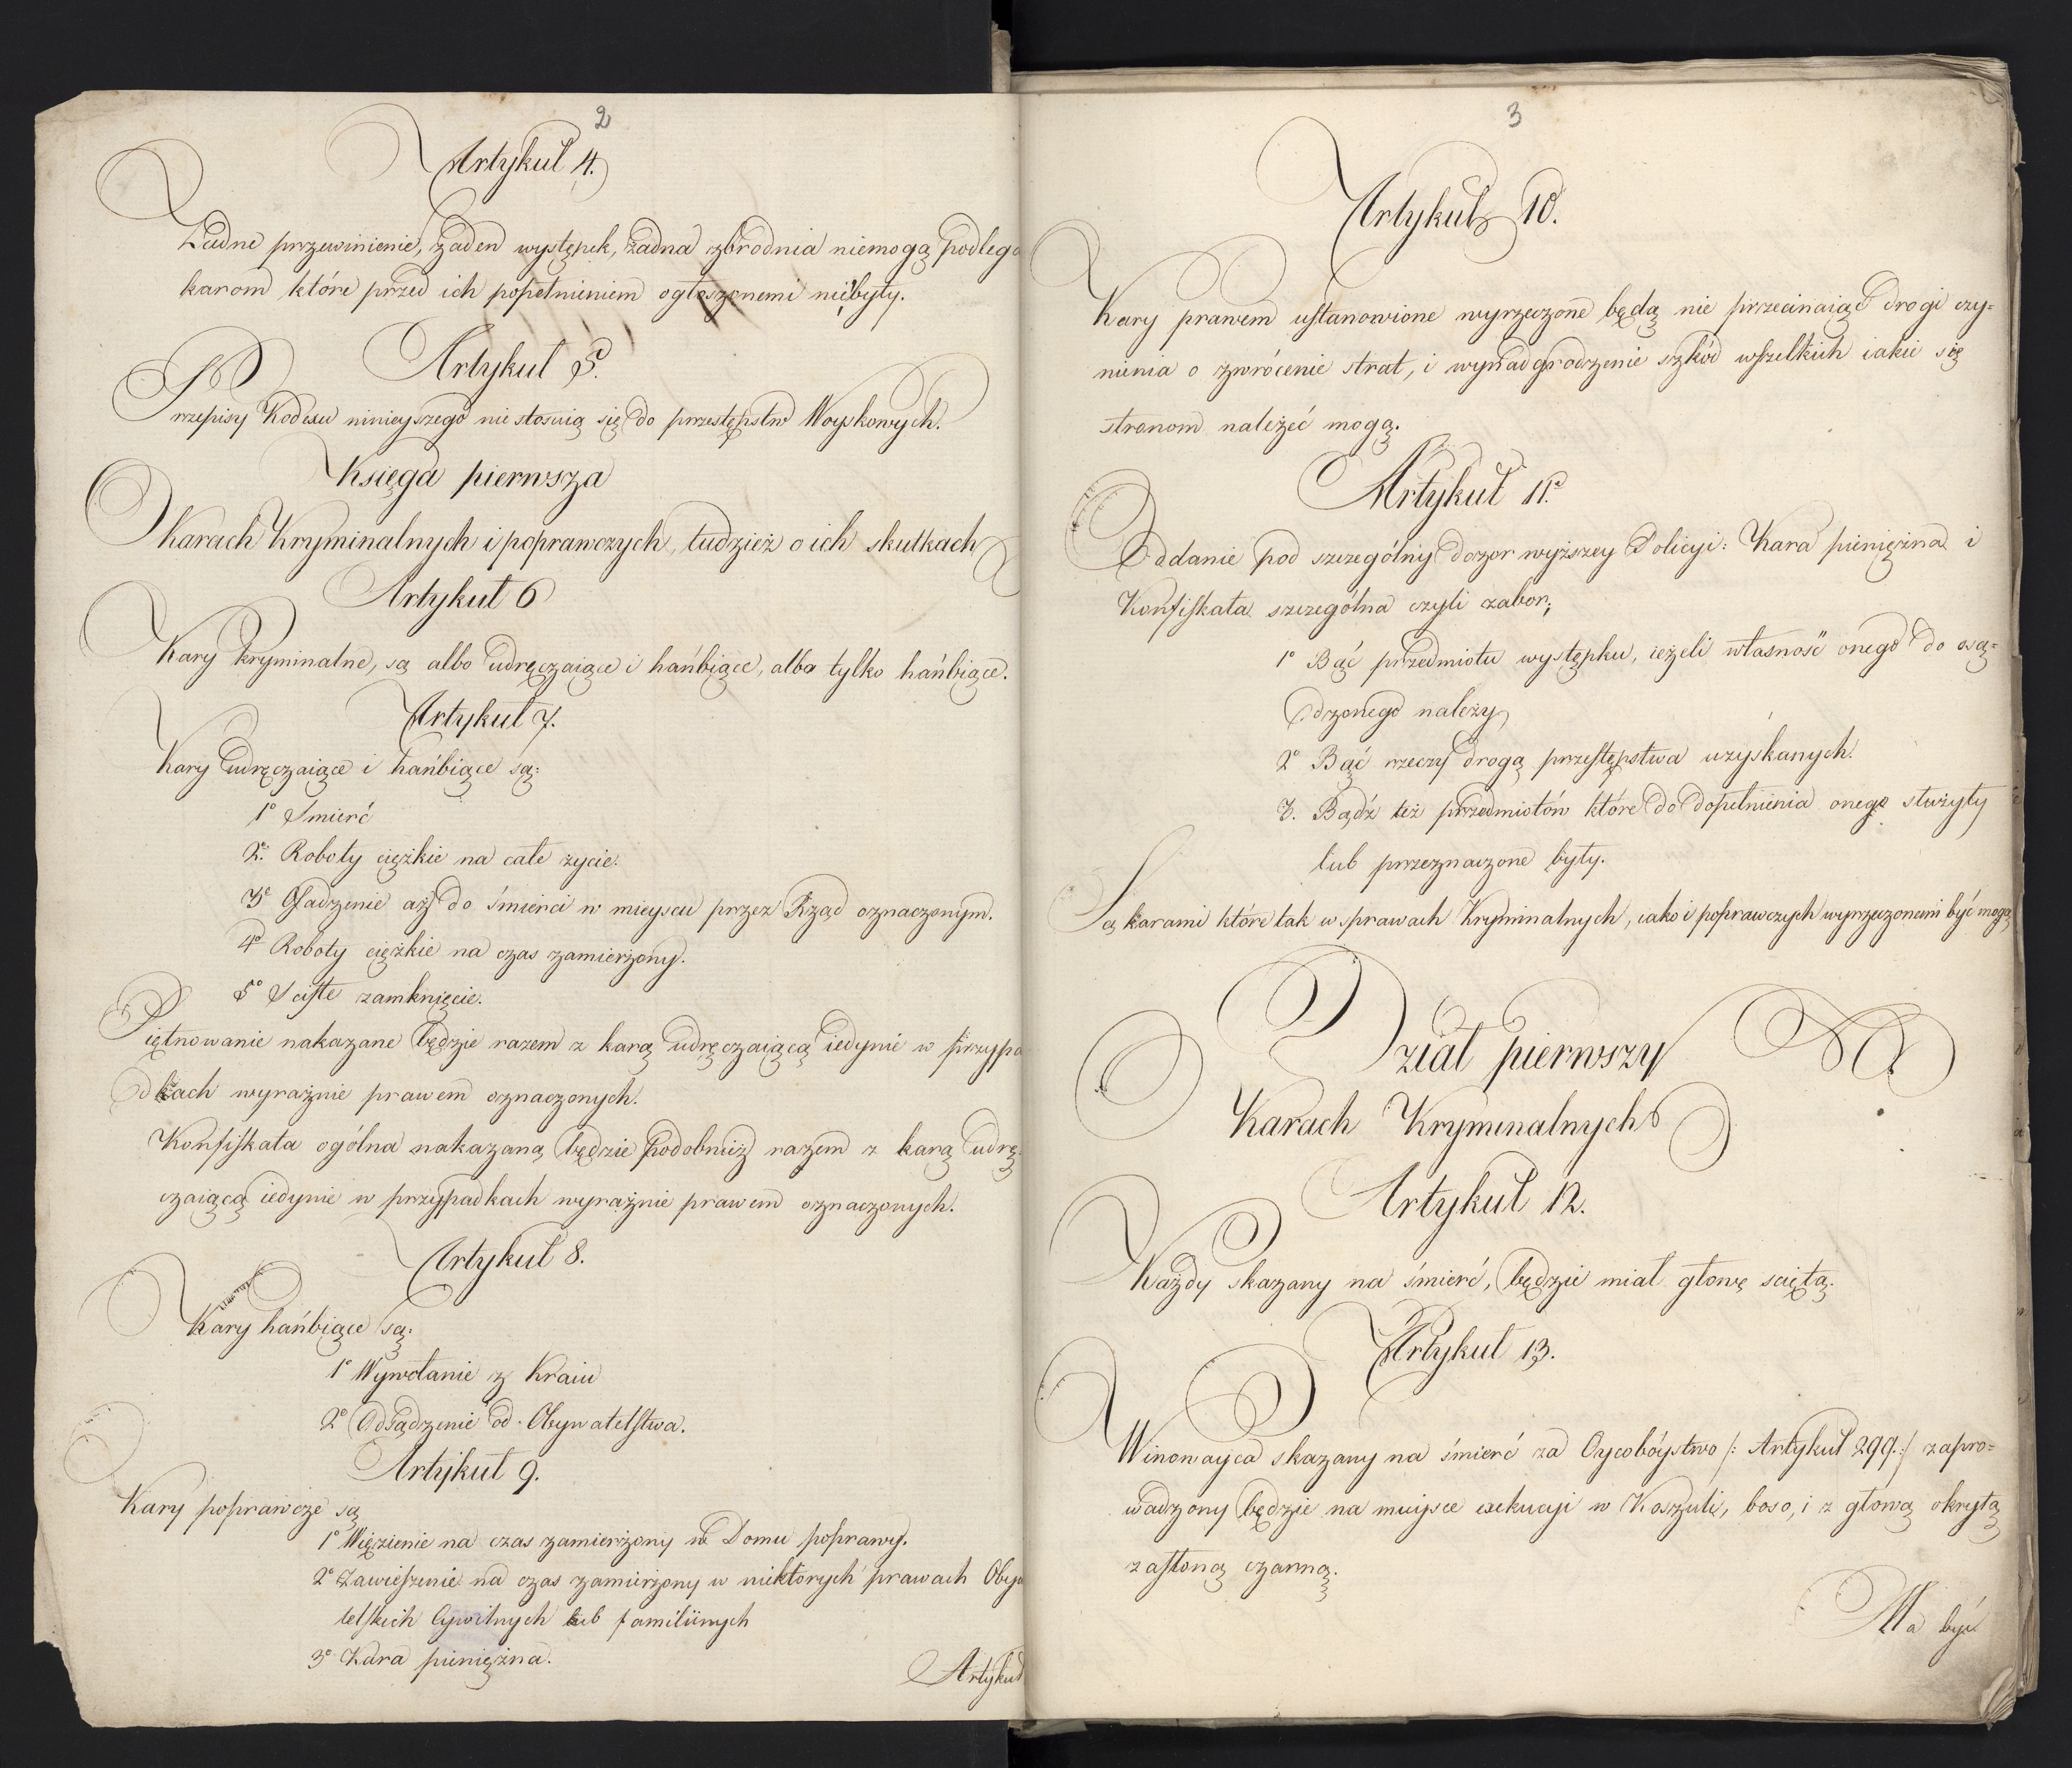 2
Artykuł 4.
Żadne przewinienie, żaden występek, żadna zbrodnia niemogą podlega
karom które przed ich popełnieniem ogłoszonemi niebyły.
Artykuł 5.
Przepisy Kodexu ninieyszego nie stosuią się do przestępstw Woyskowych.
Księga pierwsza
O Karach Kryminalnych i poprawczych, tudzież o ich skutkach
Artykuł 6
Kary kryminalne, są albo udręczaiące i hańbiące, albo tylko hańbiące.
Artykuł 7.
Kary udręczaiące i hańbiące są:
1° Smierć
2° Roboty ciężkie na całe życie.
3° Osadzenie aż do śmierci w mieyscu przez Rząd oznaczonym.
4° Roboty ciężkie na czas zamierzony.
5° Scisłe zamknięcie.
Piętnowanie nakazane będzie razem z karą udręczaiącą iedynie w przypa
dkach wyraźnie prawem oznaczonych.
Konfiskata ogólna nakazaną będzie podobnież razem z karą udrę=
czaiącą iedynie w przypadkach wyraźnie prawem oznaczonych.
Artykuł 8.
Kary hańbiące są:
1° Wywołanie z Kraiu
2° Odsądzenie od Obywatelstwa.
Artykuł 9.
Kary poprawcze są
1° Więzienie na czas zamierzony w Domu poprawy.
2° Zawieszenie na czas zamierzony w niektorych prawach Obywa
telskich Cywilnych lub familiinych
3° Kara pieniężna.
Artykuł
3
Artykuł 10.
Kary prawem ustanowione wyrzeczone będą nie przecinaiąc drogi czy=
nienia o zwrócenie strat, i wynadgrodzenie szkód wszelkich iakie się
stronom należeć mogą.
Artykuł 11.
Oddanie pod szczególny dozor wyższey Policyi: Kara pieniężna i
Konfiskata szczególna czyli zabor;
1° Bąć przedmiotu występku, ieżeli własność onego do osą=
dzonego należy
2° Bąć rzeczy drogą przestępstwa uzyskanych.
3. Bądź też przedmiotów które do dopełnienia onego służyły
lub przeznaczone były.
Są karami które tak w sprawach Kryminalnych, iako i poprawczych wyrzeczonemi być mogą
Dział pierwszy
O Karach Kryminalnych
Artykuł 12.
Każdy skazany na śmierć, będzie miał głowę sciętą.
Artykuł 13.
Winowayca skazany na śmierć za Oycobóystwo /: Artykuł 299.:/ zapro=
wadzony będzie na mieysce exekucyi w Koszuli, boso, i z głową okrytą
zasłoną czarną.
Ma być